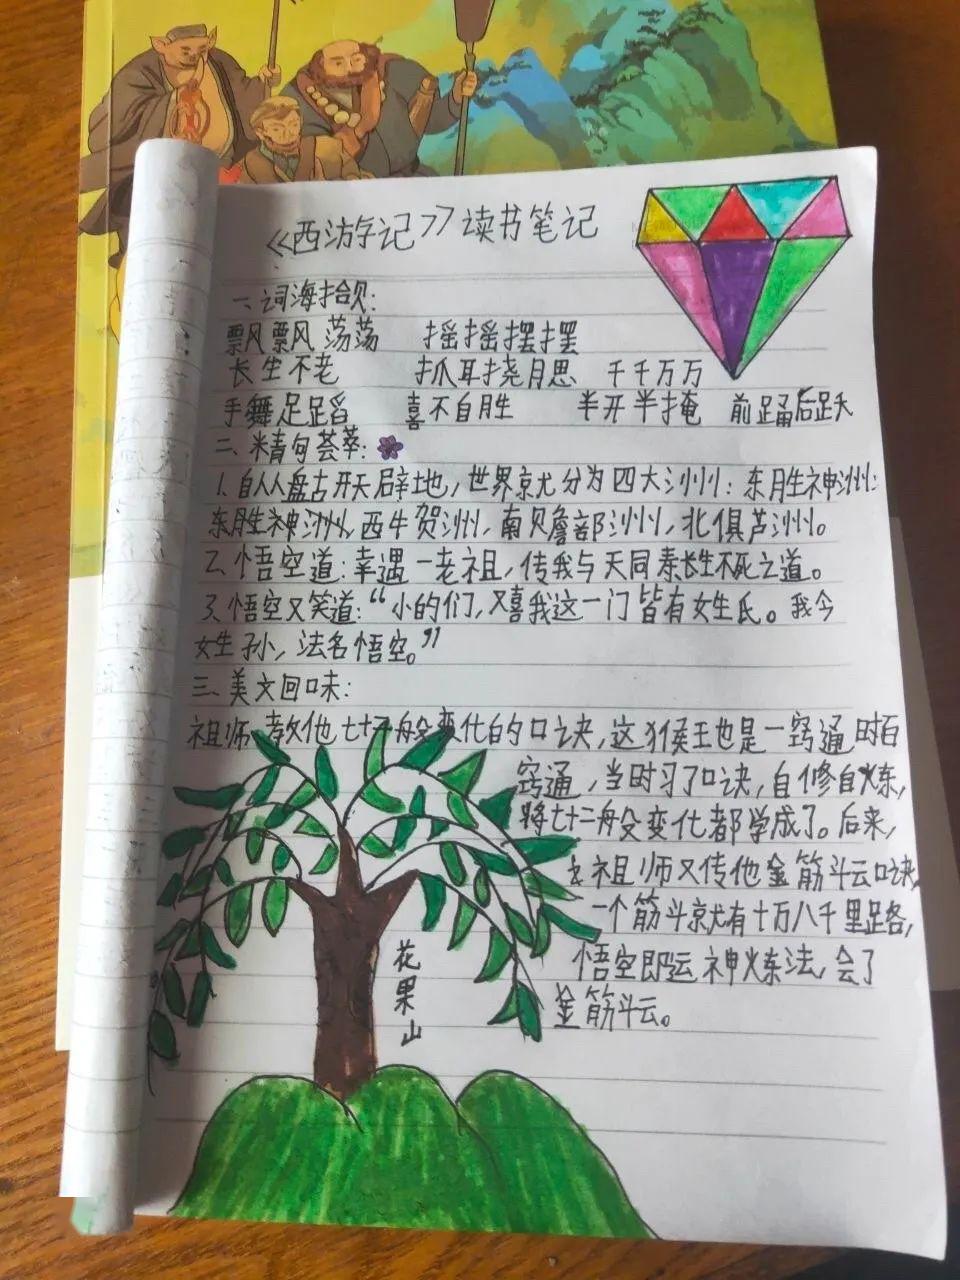 《西游记》读书笔记
一、词海拾贝：
飘飘荡荡 摇摇摆摆
长生不老 抓耳挠思 千千万万
手舞足蹈 喜不自胜 半开半掩 前踊后跃
二、精句荟萃：
1.自从盘古开天辟地，世界就分为四大洲：东胜神洲：
东胜神洲，西牛贺洲，南贝詹部洲，北俱芦洲。
2.悟空道：幸遇一老祖，传我与天同寿长生不死之道。
3.悟空又笑道：“小的们，又喜我这一门皆有姓氏。我今
姓孙，法名悟空。”
三、美文回味：
祖师教他七十般变化的口诀，这猴王也是一窍通时百
窍通，当时习了口诀，自修自炼，
将七十二般变化都学成了。后来，
祖师又传他金筋斗云口诀，
一个筋斗就有十万八千里路，
悟空即运神炼法，会了
金筋斗云。
花果山